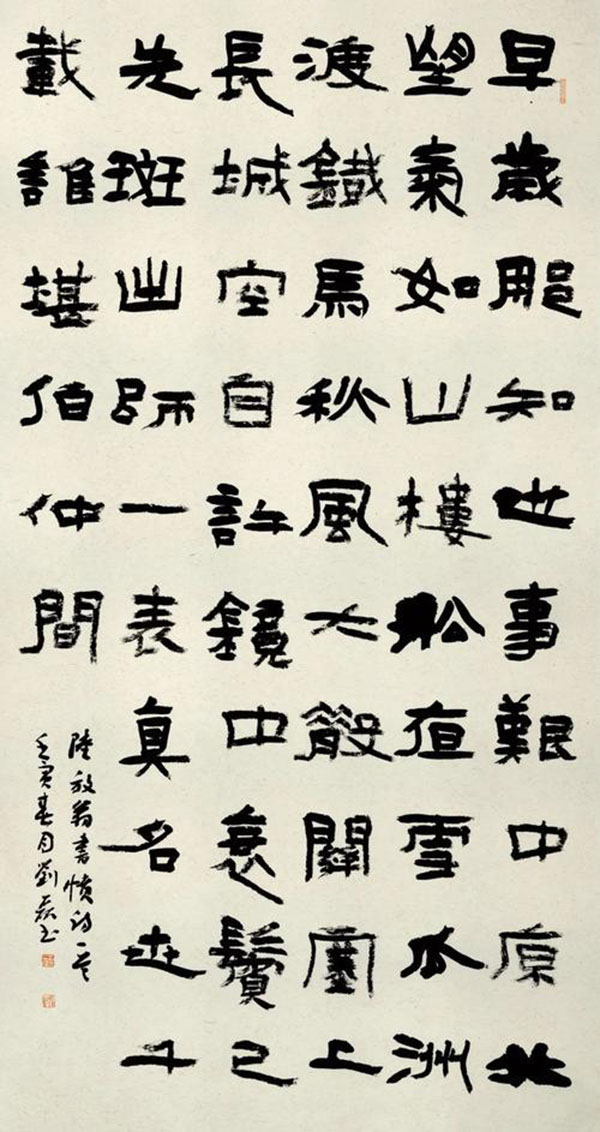 早歲那知世事艱中原北
望氣如山樓舩夜雪瓜洲
渡鐵馬秋風大散關塞上
長城空自許鏡中衰鬢已
先斑出師一表真名世千
載誰堪伯仲間
陸放翁書憤詩一首
壬寅春月劉磊书